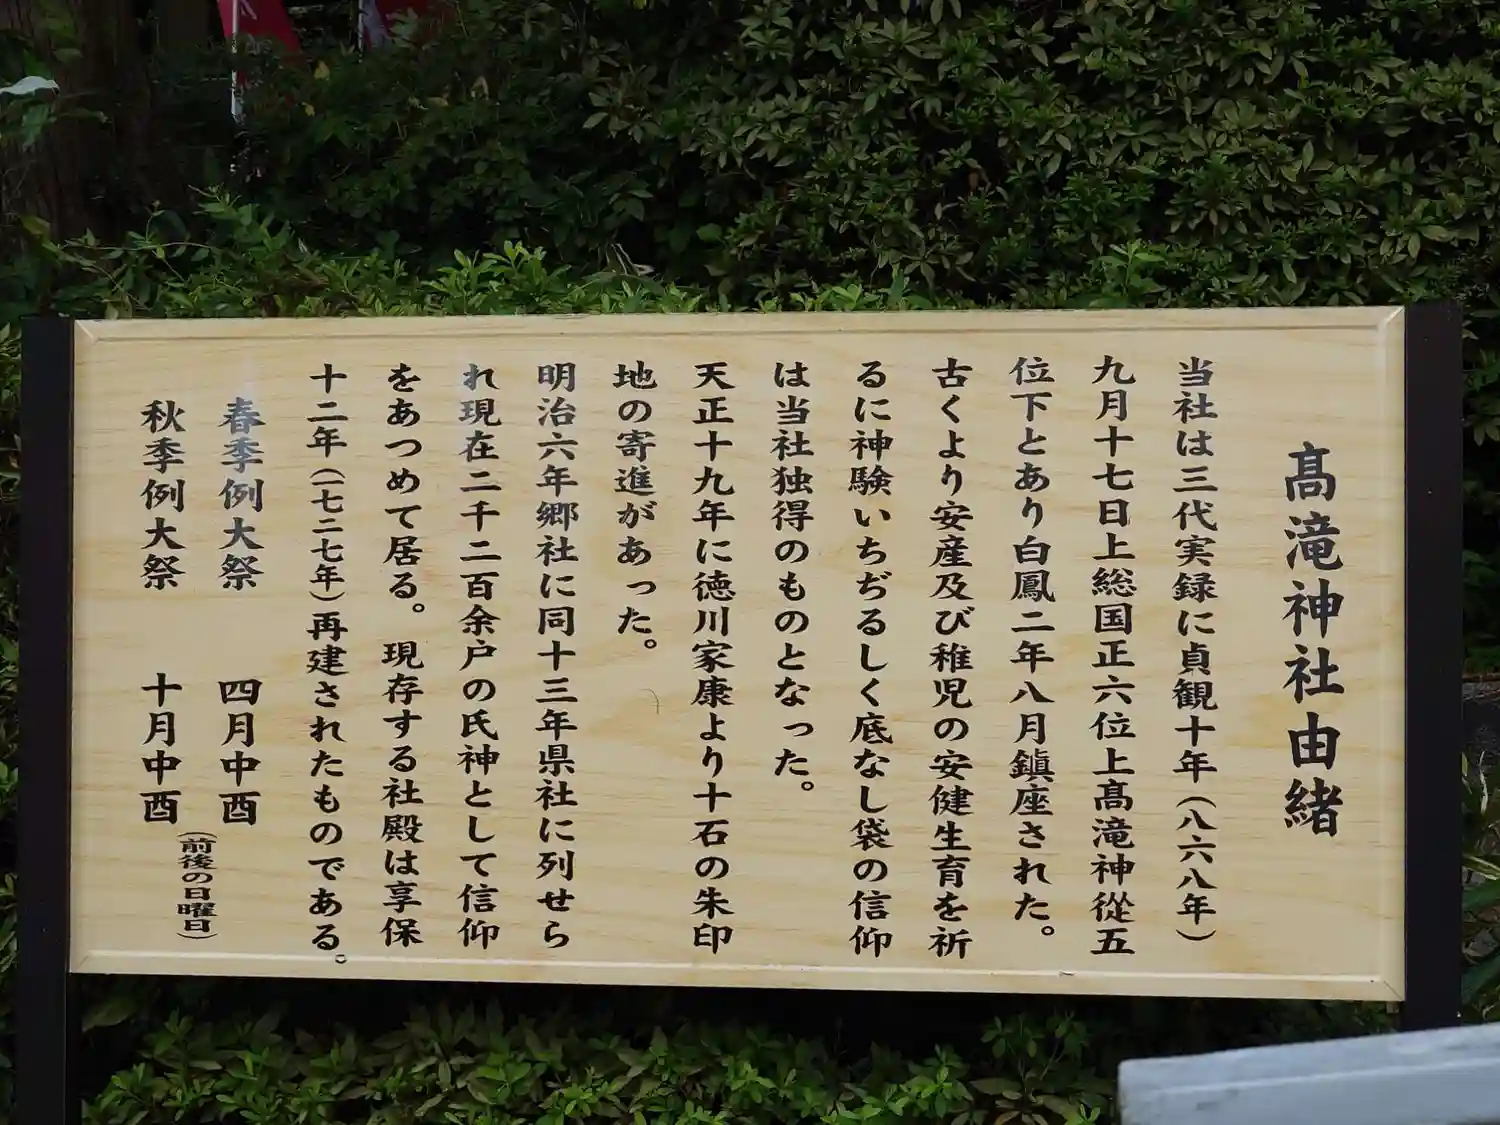 髙滝神社由緒
当社は三代実録に貞観十年（八六八年）
九月十七日上総国正六位上髙滝神従五
位下とあり白鳳二年八月鎮座された。
古くより安産及び稚児の安健生育を祈
るに神験いちぢるしく底なし袋の信仰
は当社独得のものとなった。
天正十九年に徳川家康より十石の朱印
地の寄進があった。
明治六年郷社に同十三年県社に列せら
れ現在二千二百余戸の氏神として信仰
をあつめて居る。現存する社殿は享保
十二年（一七二七年）再建されたものである。
春季例大祭　四月中酉
秋季例大祭　十月中酉
（前後の日曜日）